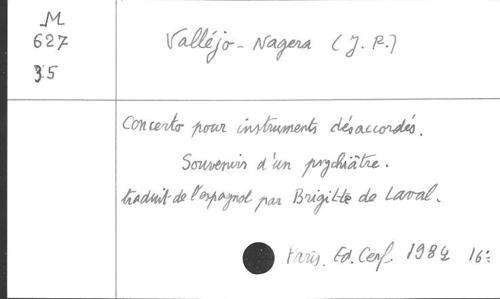 M
627
35
Valléjo-Nagera (J. R.)
Concerto pour instruments désaccordés.
Souvenirs d'un psychiâtre.
traduit de l'espagnol par Brigitte de Laval.
Paris. Ed. Cerf. 1984 16=